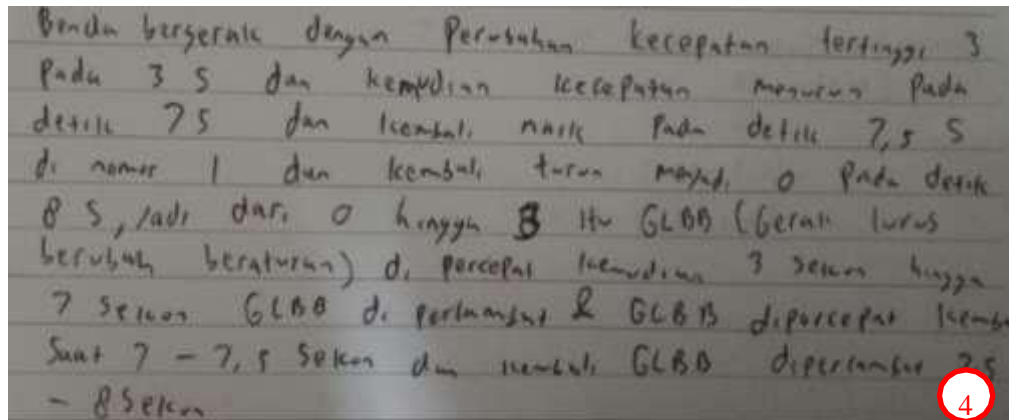 Benda bergerak dengan Perubahan kecepatan tertinggi 3
Pada 3 S dan kemudian kecepatan menurun Pada
detik 7 S dan kembali naik Pada detik 7,5 S
di nomor 1 dan kembali turun menjadi 0 Pada detik
8 S, Jadi dari 0 hingga 3 itu GLBB (Gerak lurus
berubah beraturan) di percepat kemudian 3 sekon hingga
7 sekon GLBB di perlambat & GLBB dipercepat kemba
Saat 7 - 7,5 sekon dan kembali GLBB diperlambat 7,5
- 8 Sekon
4